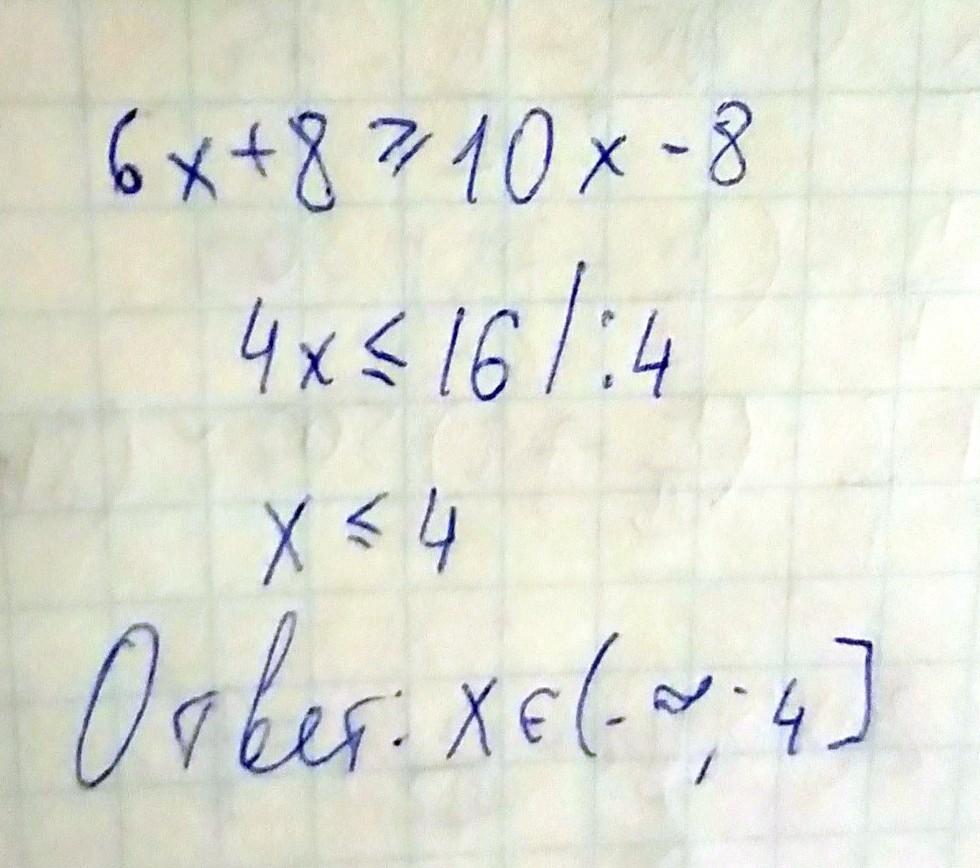 6x+8⩾10x-8
4x≤16/:4
x≤4
Ответ: x∈(-∞; 4]